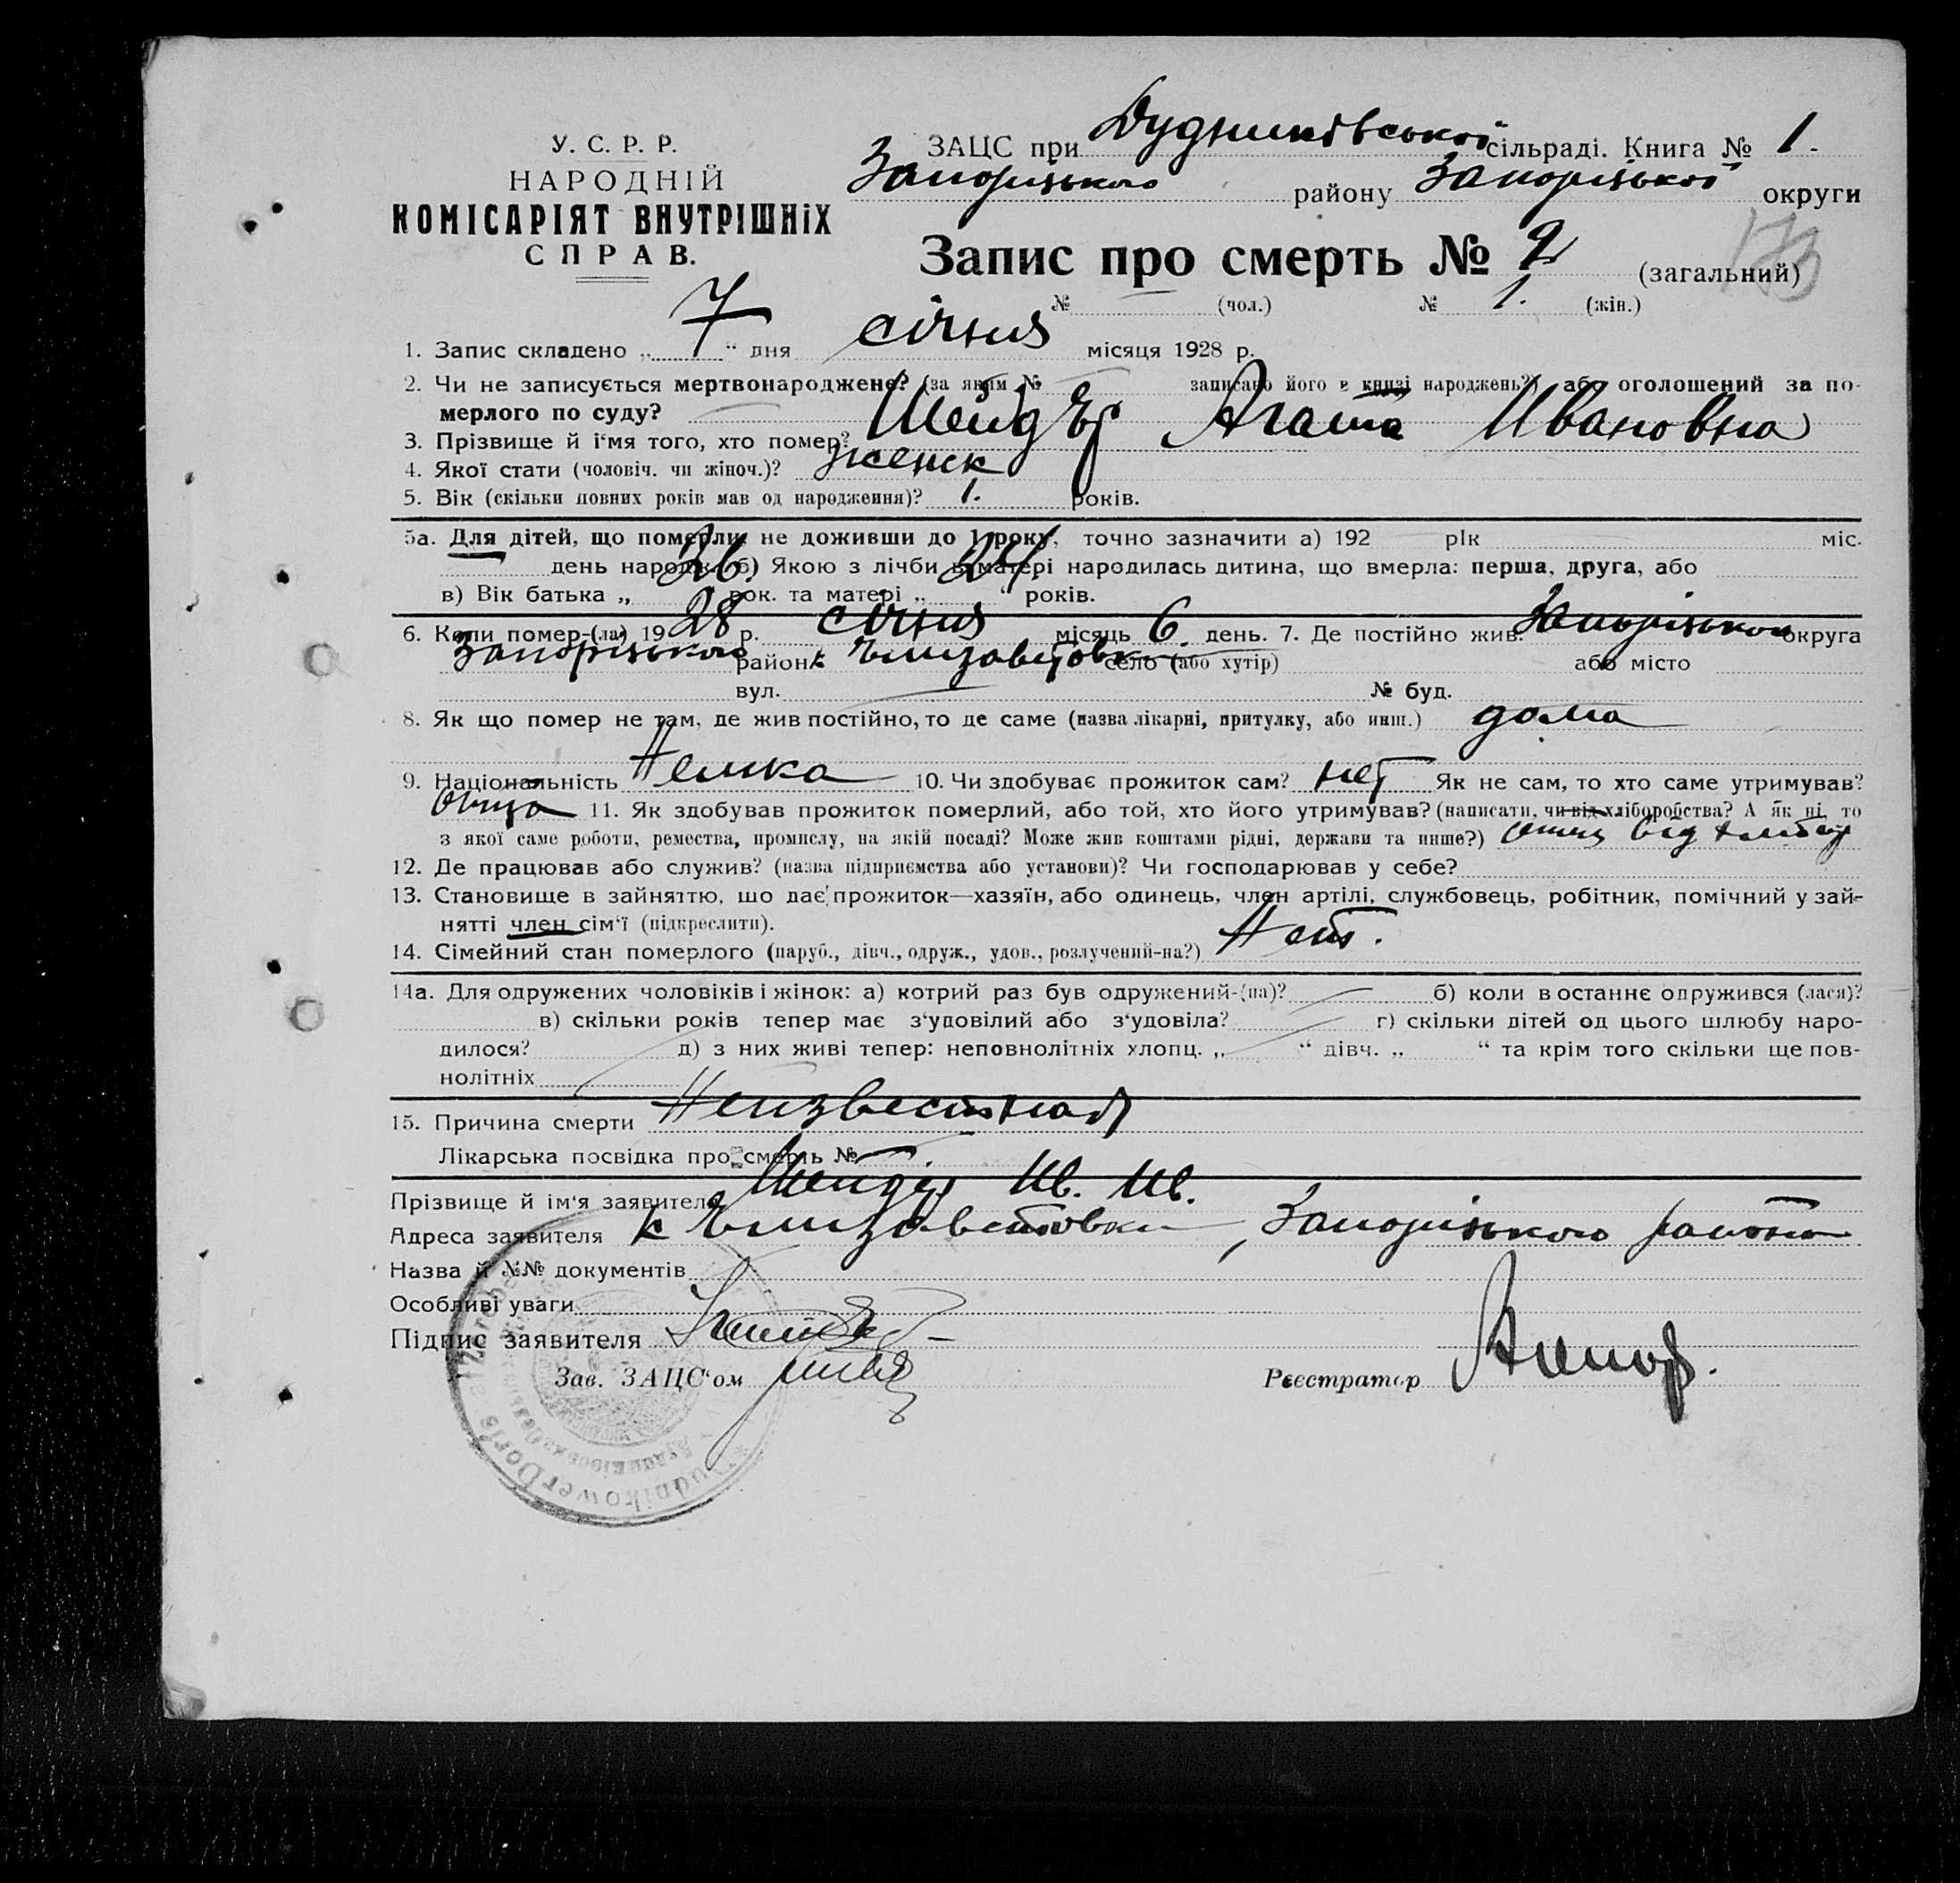 У. С. Р. Р.
НАРОДНІЙ
КОМІСАРІЯТ ВНУТРІШНІХ
СПРАВ.
ЗАЦС при Дудниківської сільраді. Книга № 1.
Запорізького району Запорізької округи
Запис про смерть № 2 (загальний)
173
№ — (чол.) № 1. (жін.)
1. Запис складено „ 7 “ дня січня місяця 1928 р.
2. Чи не записується мертвонароджене? (за яким № записано його в книзі народжень?) або оголошений за по-
мерлого по суду? —
3. Прізвище й ім'я того, хто помер? Агата Ивановна
4. Якої стати (чоловіч. чи жіноч.)? женск
5. Вік (скільки повних років мав од народження)? 1. років.
5а. Для дітей, що померли, не доживши до 1 року, точно зазначити а) 192 рік міс.
день народж. б) Якою з лічби в матері народилась дитина, що вмерла: перша, друга, або
в) Вік батька „ 26. рок. та матері „ 24. “ років.
6. Коли помер-(ла) 1928 р. січня місяць 6. день. 7. Де постійно жив: Запорізької округа
Запорізького район к Елизаветовка село (або хутір) або місто
вул. — № буд.
8. Як що помер не там, де жив постійно, то де саме (назва лікарні, притулку, або инш.) дома
9. Національність Немка 10. Чи здобуває прожиток сам? нет Як не сам, то хто саме утримував?
отца 11. Як здобував прожиток померлий, або той, хто його утримував? (написати, чи від хліборобства? А як ні, то
з якої саме роботи, ремества, промислу, на якій посаді? Може жив коштами рідні, держави та инше?) від
12. Де працював або служив? (назва підприємства або установи)? Чи господарював у себе?
13. Становище в зайняттю, що дає прожиток—хазяїн, або одинець, член артілі, службовець, робітник, помічний у зай-
нятті член сім'ї (підкреслити).
14. Сімейний стан померлого (паруб., дівч., одруж., удов., розлучений-на?) Нет.
14а. Для одружених чоловіків і жінок: а) котрий раз був одружений-(на)? б) коли в останнє одружився (лася)?
в) скільки років тепер має з'удовілий або з'удовіла? г) скільки дітей од цього шлюбу наро-
дилося? д) з них живі тепер: неповнолітніх хлопц. „ “ дівч. „ “ та крім того скільки ще пов-
нолітніх
15. Причина смерти Неизвестная
Лікарська посвідка про смерть № —
Прізвище й ім'я заявителя Ив. Ив.
Адреса заявителя к Елизаветовка, Запорізького района
Назва й №№ документів
Особливі уваги
Підпис заявителя
Зав. ЗАЦС'ом
Реєстратор
Dudnikower Dorf